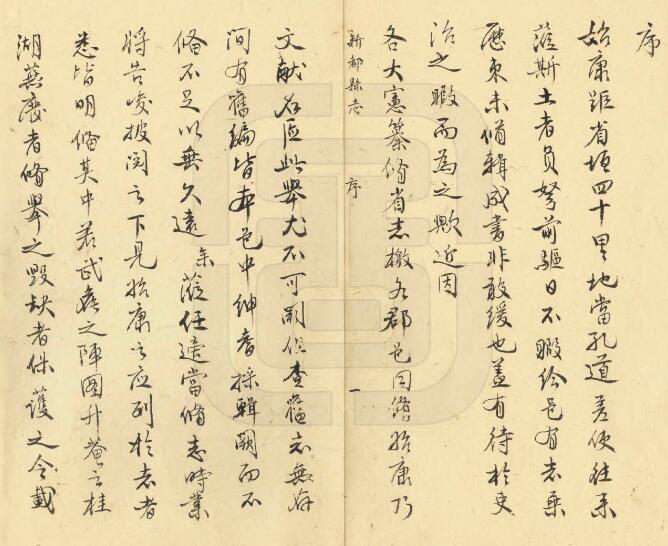 序
始康距省垣四十里地當孔道差使往来
蒞斯土者負弩前驅日不暇给邑有志乗
歷来未脩輯成書非敢緩也蓋有待於吏
治之暇而為之歟近因
各大憲纂脩省志檄各郡邑因脩始康乃
新都縣志
序
一
文献名區此舉尤不可闕但查舊志無存
间有舊編皆本邑中紳耆採輯闕而不
脩不足以垂久遠余蒞任適當脩志時業
将告竣披阅之下見始康之应列於志者
悉皆明脩其中若武矦之陣圖升菴之桂
湖蕪廢者脩舉之毁缺者保護之今載